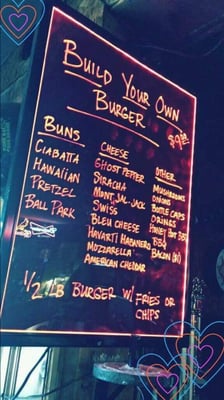 Build Your Own
Burger
Buns
Ciabatta
Hawaiian
Pretzel
Ball Park
Cheese
Ghost Pepper
Siracha
Mont. Jal. Jack
Swiss
Bleu Cheese
Havarti Habanero
Mozzarella
American Chedar
Other
Mushrooms
Onions
Bottle Caps
O.Rings
BBQ
1/2 LB Burger w/ Fries or
Chips